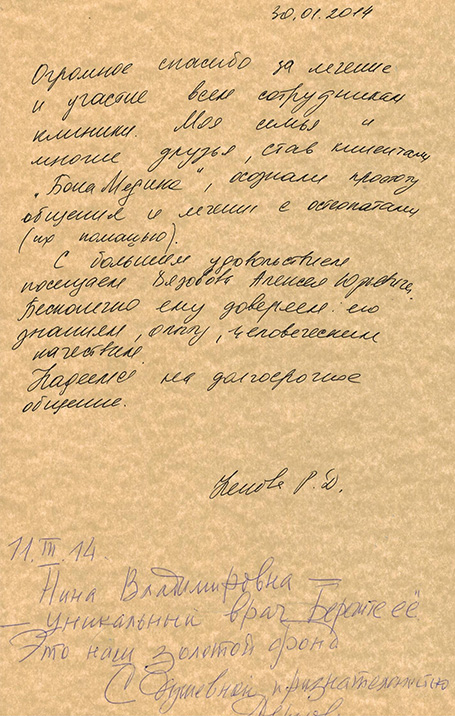 30.01.2014
Огромное спасибо за лечение
и участие всем сотрудникам
клиники. Моя семья и
многие друзья, став клиентами
"Бона Медика", осознали простоту
общения и лечения с остеопатами
(их помощью).
С большим удовольствием
посещаем Алексея Юрьевича.
Бесконечно ему доверяем: его
знаниям, опыту, человеческим
качествам.
Надеемся на долгосрочное
общение.
Р. Д.
11.III.14.
Нина Владимировна —
— уникальный врач. Берегите её
Это наш золотой фонд
С душевной признательностью